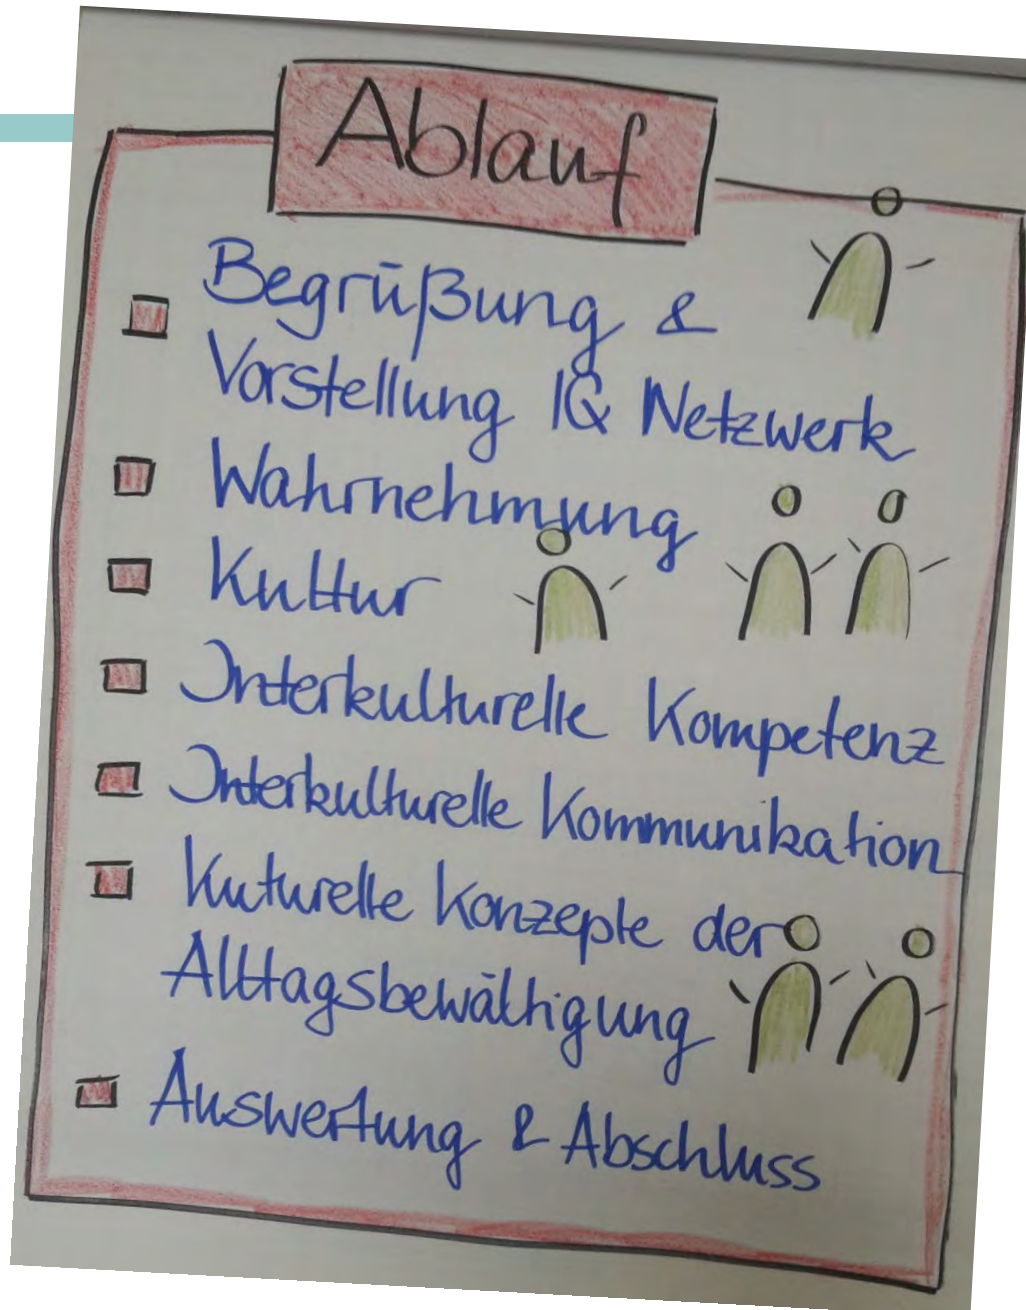 Ablauf
Begrüßung &
Vorstellung IQ Netzwerk
Wahrnehmung
Kultur
Interkulturelle Kompetenz
Interkulturelle Kommunikation
Kuturelle Konzepte der
Alltagsbewältigung
Auswertung & Abschluss